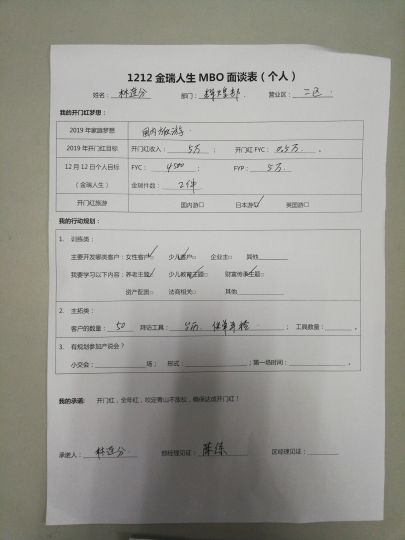 1212 金瑞人生 MBO 面谈表（个人）
姓名： 林莲分 部门： 辉煌部 营业区： 二区
我的开门红梦想：
2019 年家庭梦想 国内旅游
2019 年开门红目标 开门红收入： 5万 ； 开门红 FYC： 0.5万 。
12 月 12 日个人目标 FYC： 4500 ； FYP： 5万
（金瑞人生） 金瑞件数： 2件
开门红旅游 国内游□ 日本游☑ 英国游□
我的行动规划：
1. 训练类：
主要开发哪类客户：女性客户☑ 少儿客户☑ 企业主□ 其他
我要学习以下内容：养老主题☑ 少儿教育主题☑ 财富传承主题☑
资产配置□ 法商相关□ 其他
2. 主拓类：
客户的数量： 50 拜访工具： 保单年检 ； 工具数量： 。
3. 有规划参加产说会？
小交会： 场； 形式： ;第一场时间： 。
我的承诺： 开门红，全年红，咬定青山不放松，确保达成开门红！
承诺人： 林莲分 部经理见证： 区经理见证：